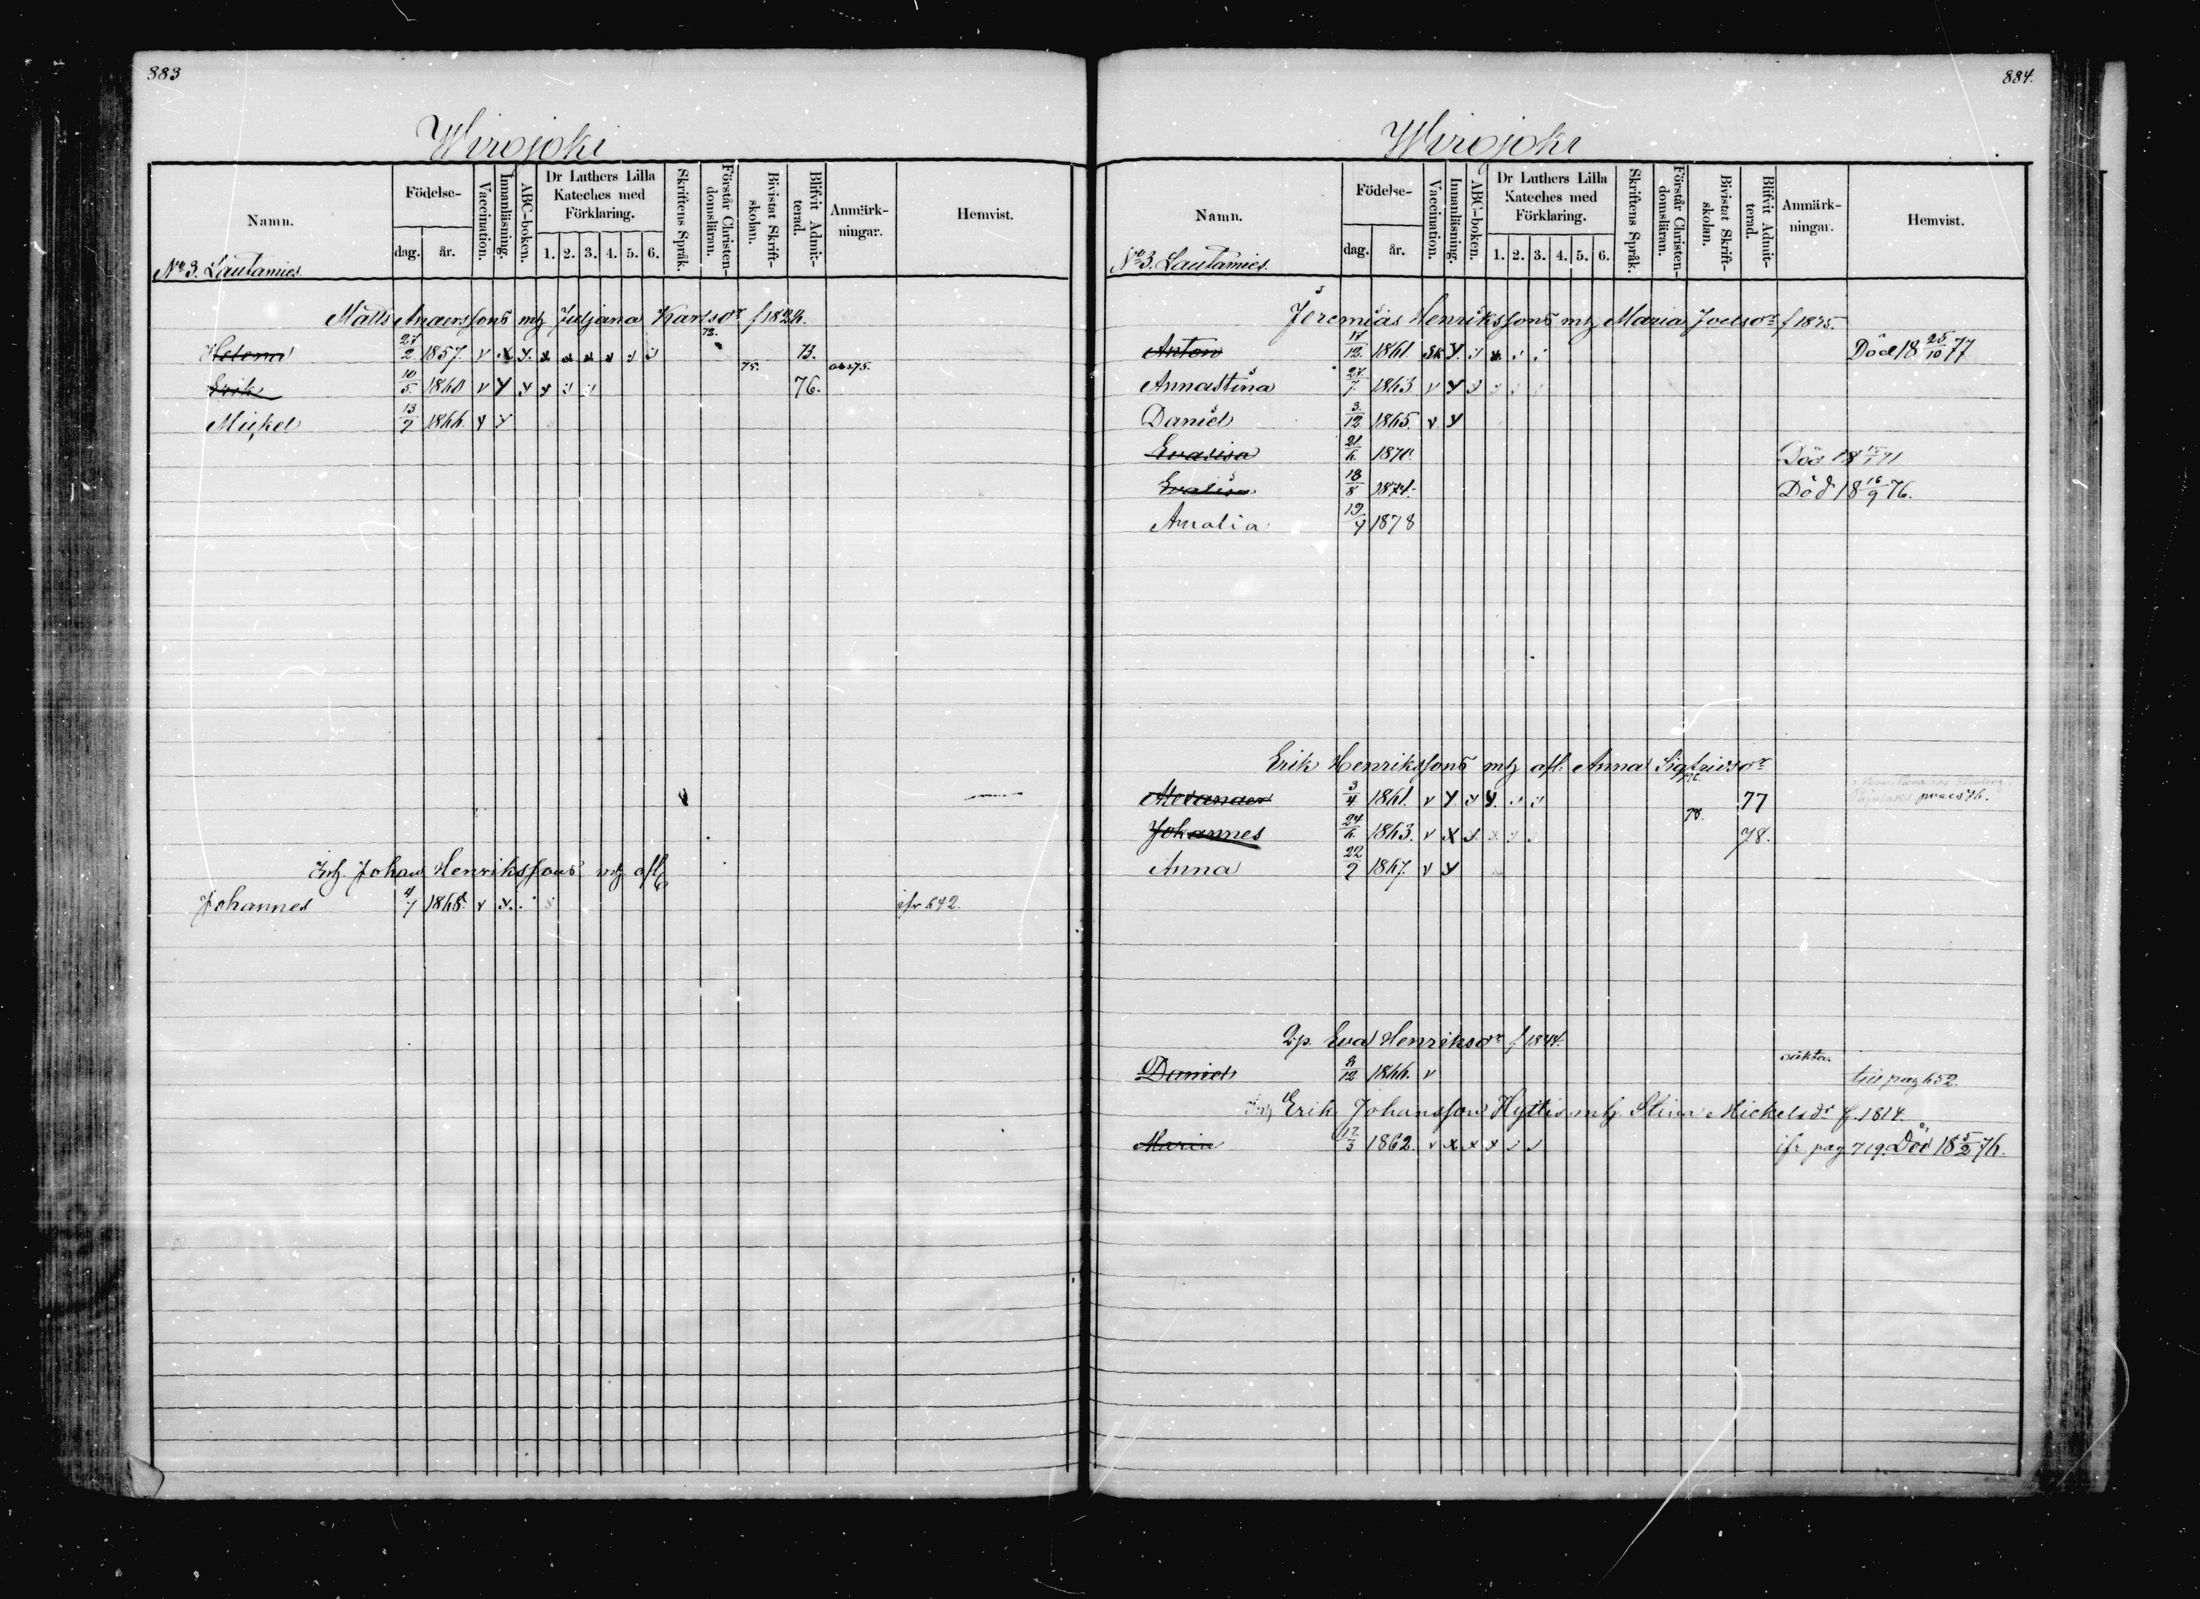 883
Wirojoki
Namn.
Födelse-
dag.
år.
Vaccination.
Innanläsning.
ABC-boken.
Dr Luthers Lilla
Kateches med
Förklaring.
1. 2. 3. 4. 5. 6.
Skriftens Språk.
Förstår Christen-
domsläran.
Bivistat Skrift-
skolan.
Blifvit Admit-
terad.
Anmärk-
ningar.
Hemvist.
No 3. Lautamies.
Matts Anderssons mh Juljana Karlsdr f 1824.
Helena 27/2 1857. v x y. x x x x 73. 73.
Erik 10/5 1860 v y y y 75. 76.
Mickel 13/7 1866. v y
Johan Henrikssons
Johannes 4/7 1868. v y. ifr 642.
884.
Wirojoki
Namn.
Födelse-
dag.
år.
Vaccination.
Innanläsning.
ABC-boken.
Dr Luthers Lilla
Kateches med
Förklaring.
1. 2. 3. 4. 5. 6.
Skriftens Språk.
Förstår Christen-
domsläran.
Bivistat Skrift-
skolan.
Blifvit Admit-
terad.
Anmärk-
ningar.
Hemvist.
No 3. Lautamies.
Jeremias Henrikssons mh Maria Joelsdr f 1835.
Anton 17/12 1861. sk y. Död 18 25/10 77
Annastina 27/7 1863 v y y
Daniel 3/12 1865 v y
Evalisa 21/6 1870. Död 18 71
Evalisa 18/8 1871. Död 18 16/9 76.
Amalia 19/7 1878
Erik Henrikssons mh afl. Anna Sigfridsdr
Alexander 3/4 1861. v y y y 77
Johannes 24/6 1863. v x y 78. 78.
Anna 22/7 1867. v y
Eva Henriksdr f 1844.
Daniel 8/12 1866. v till pag 652.
Erik Johansson Hyttis mh. Stina Mickelsdr f. 1814.
Maria 12/3 1862. v x x y ifr pag 719. Död 18 5/2 76.